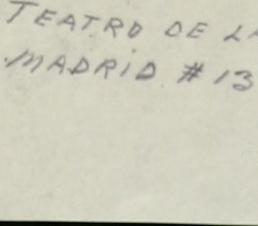 TEATRO DE LA
MADRID # 13